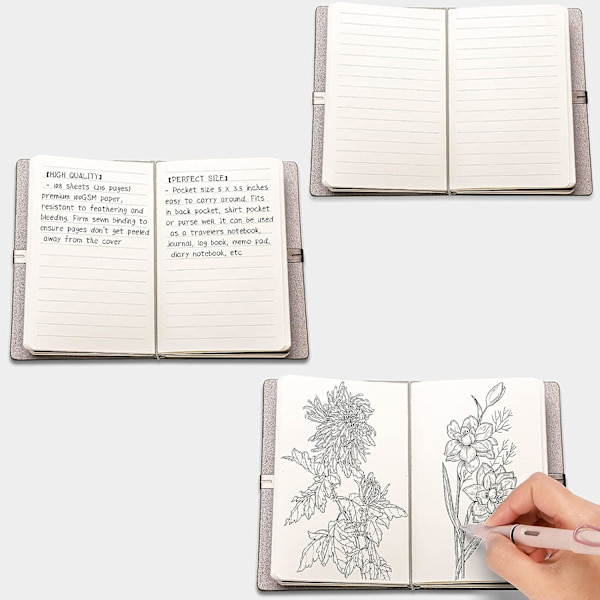 【HIGH QUALITY】
- 108 sheets (216 pages)
premium 100GSM paper,
resistant to feathering and
bleeding. Firm sewn binding to
ensure pages don't get peeled
away from the cover
【PERFECT SIZE】
- Pocket size 5 X 3.5 inches
easy to carry around. Fits
in back pocket, shirt pocket
or purse well. It can be used
as a travelers notebook,
journal, log book, memo pad,
diary notebook, etc